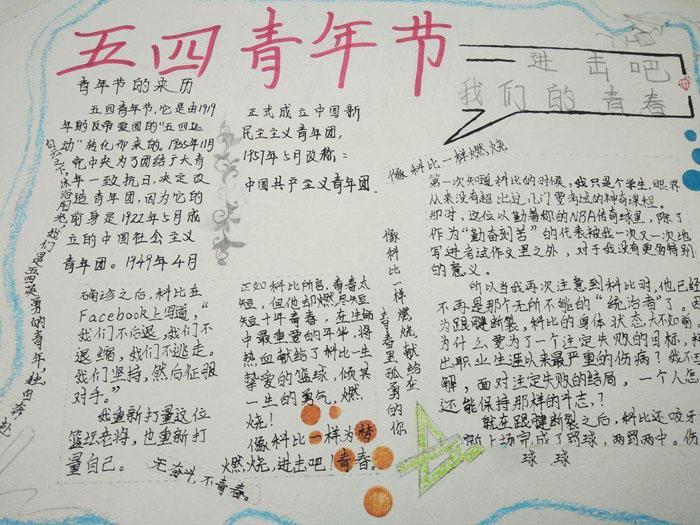 五四青年节
进击吧
我们的青春
青年节的来历
五四青年节,它是由1919
年的反帝爱国的"五四运
动"转化而来的。1935年11月
党中央为了团结广大青
年一致抗日,决定改
造青年团,因为它的
前身是1922年5月成
立的中国社会主义
青年团。1949年4月
正式成立中国新
民主主义青年团,
1957年5月改称:
中国共产主义青年团.
像科比一样燃烧
第一次知道科比的时候,我只是个学生,眼界
从来没有超出过几门要考试的神奇课程。
那时,这位以勤着称的NBA传奇球星,除了
作为"勤奋刻苦"的代表被我一次又一次地
写进考试作文里之外,对于我没有更多特别
的意义。
所以当我再次注意到科比时,他已经
不再是那个无所不能的"统治者"了。因
为跟腱断裂,科比的身体状态大不如前,
为什么要为了一个注定失败的目标,
出职业生涯以来最严重的伤病?我不
解,面对注定失败的结局,一个人怎
还能保持那样的斗志?
就在跟腱断裂之后,科比还咬牙
上场完成了罚球,两罚两中。伤
球 球
确诊之后,科比在
Facebook上写道,"
我们不后退,我们不
退缩,我们不逃走。
我们坚持,然后征服
对手。"
我重新打量这位
篮坛老将,也重新打
量自己。
正如科比所言,青春太
短,但他却燃尽短
短十年青春,在生命
中最重要的年华,将
热血献给了科比一生
挚爱的篮球,倾其
一生的勇气,燃
烧!
像科比一样为梦
燃烧,进击吧!青春。
无奋斗,不青春。
像科比一样燃烧献给在
青春里孤勇的你
我们是五四
勇的青年,独自奔赴